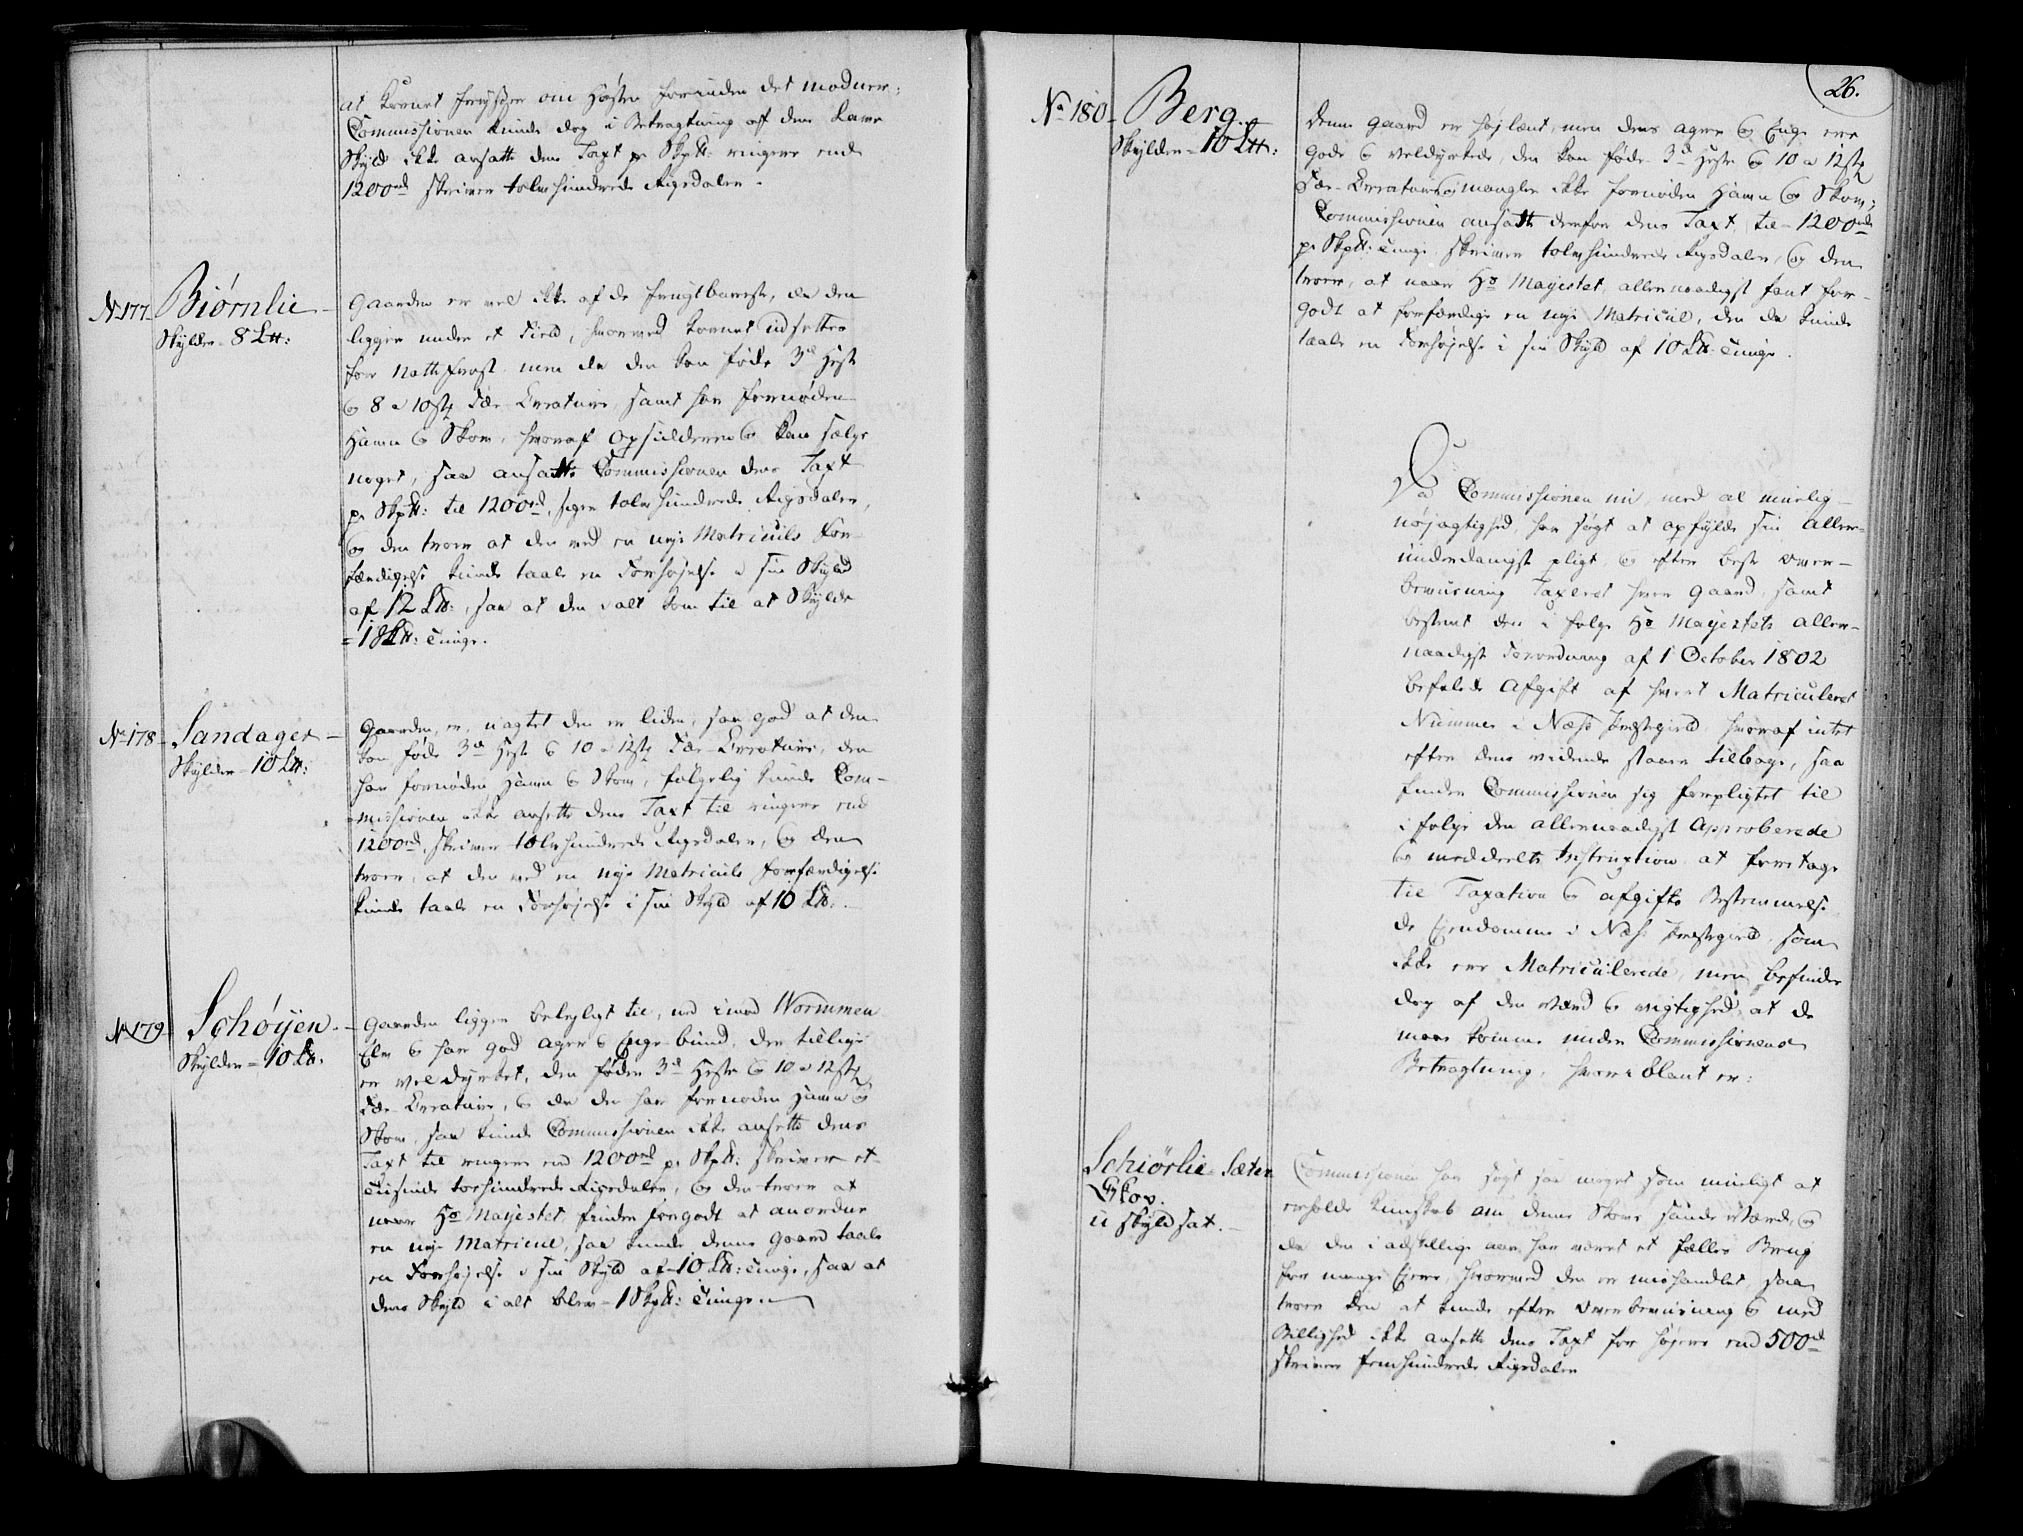 at Kornet fryser om Høsten forinden det modner;
Commissionen kunde dog i Betragtning af dens Lave
Skyld ikke ansatte dens Taxt pr Skp℔: ringere end
1200rd skriver tolvhundrede Rigsdaler.
No 177. Biørnlie
Skylder 8 L℔:
Gaarden er vel ikke af de frugtbareste, da den
ligger under et Field, hvorved Kornet udsettes
for Natte frost, men da den kan føde 3de Heste
og 8 a 10 stk Fæe-Creature, samt har fornøden
Havn og Skov, hvoraf Opsidderen og kan sælge
noget, saa ansatte Commissionen dens Taxt
pr Skp℔: til 1200rd, siger tolvhundrede Rigsdaler,
og den troer at den ved en nye Matriculs For-
færdigelse kunde taale en Forhøjelse i sin Skyld
af 12 L℔:, saa at den i alt kom til at Skylde
= 18 L℔: Tunge.
No 178 - Sandager -
Skylder - 10 L℔:
Gaarden, er, uagtet den er liden, saa god at den
kan føde 3de Heste og 10 a 12 stk Fæe-Creature, den
har fornøden Havn og Skov, følgelig kunde Com-
missionen ikke ansette dens Taxt til ringere end
1200rd, skriver tolvhundrede Rigsdaler, og den
troer, at den ved en nye Matriculs Forfærdigelse
kunde taale en Forhøjelse i sin Skyld af 10 L℔:
No 179. Schøyen. -
Skylder = 10 L℔.
Gaarden ligger belejligt til, ned imod Wormmen
Elv og har god Ager og Enge-bund, der tillige
er vel dyrket, den føder 3de Heste og 10 a 12 stk
Fæe-Creature, og da den har fornøden Havn og
Skov, saa kunde Commissionen ikke ansette dens
Taxt til ringere end 1200rd pr Skp℔: skriver et
Tusinde tvehundrede Rigsdaler, og den troer at
naar Hs Mayestet, finder forgodt at anordne
en nye Matricul, saa kunde denne Gaard taale
en Forhøjelse i sin Skyld af 10 L℔: Tunge, saa at
dens Skyld i alt blev - 1 Skp℔: Tunge.
26.
No 180- Berg.
Skylder = 10 L℔:
Denne Gaard er højlænt, men dens Ager og Enge ere
gode og veldyrkede, den kan føde 3de Heste og 10 a 12 stk
Fæe-Creature og mangler ikke fornøden Havn og Skov;
Commissionen ansatte derfor dens Taxt til - 1200rd
pr Skp℔: Tunge skriver tolvhundrede Rigsdaler, og den
troer, at naar Hs Mayestet, allernaadigst fant for-
godt at forfærdige en nye Matricul, den da kunde
taale en Forhøjelse i sin Skyld af 10 L℔: Tunge.
Da Commissionen nu, med al muelig
nøjagtighed, har søgt at opfylde sin Aller-
underdanigst pligt og efter beste over-
beviisning Taxeret hver Gaard, samt
bestemt den i følge Hs Mayestets Aller-
naadigst Forordning af 1 October 1802
befalede Afgift af hvert Matriculeret
Nummer i Næss Præstegield, hvoraf intet
efter dens vidende staaer tilbage, saa
finder Commissionen sig forpligtet til
i følge den allernaadigst Approberede
og meddeelte Instruxtion at foretage
til Taxation og afgifts Bestemmelse
de Ejendomme i Næss Præstegield, som
ikke ere Matriculerede, men befindes
dog af den Værd og vigtighed, at de
maae komme under Commissionens
Betragtning, hvoriblant er:
Schiørlie Sæter
Skov.
u skyldsat. -
Commissionen har søgt saa meget som mueligt at
erholde Kundskab om denne Skovs sande Værd, og
da den i adskillige aar har været et fælles Brug
for mange Ejere, hvorved den er mishandlet, saa
troer den at kunde efter overbeviisning og med
Billighed ikke ansette dens Taxt for højere end 500rd
skriver femhundrede Rigsdaler